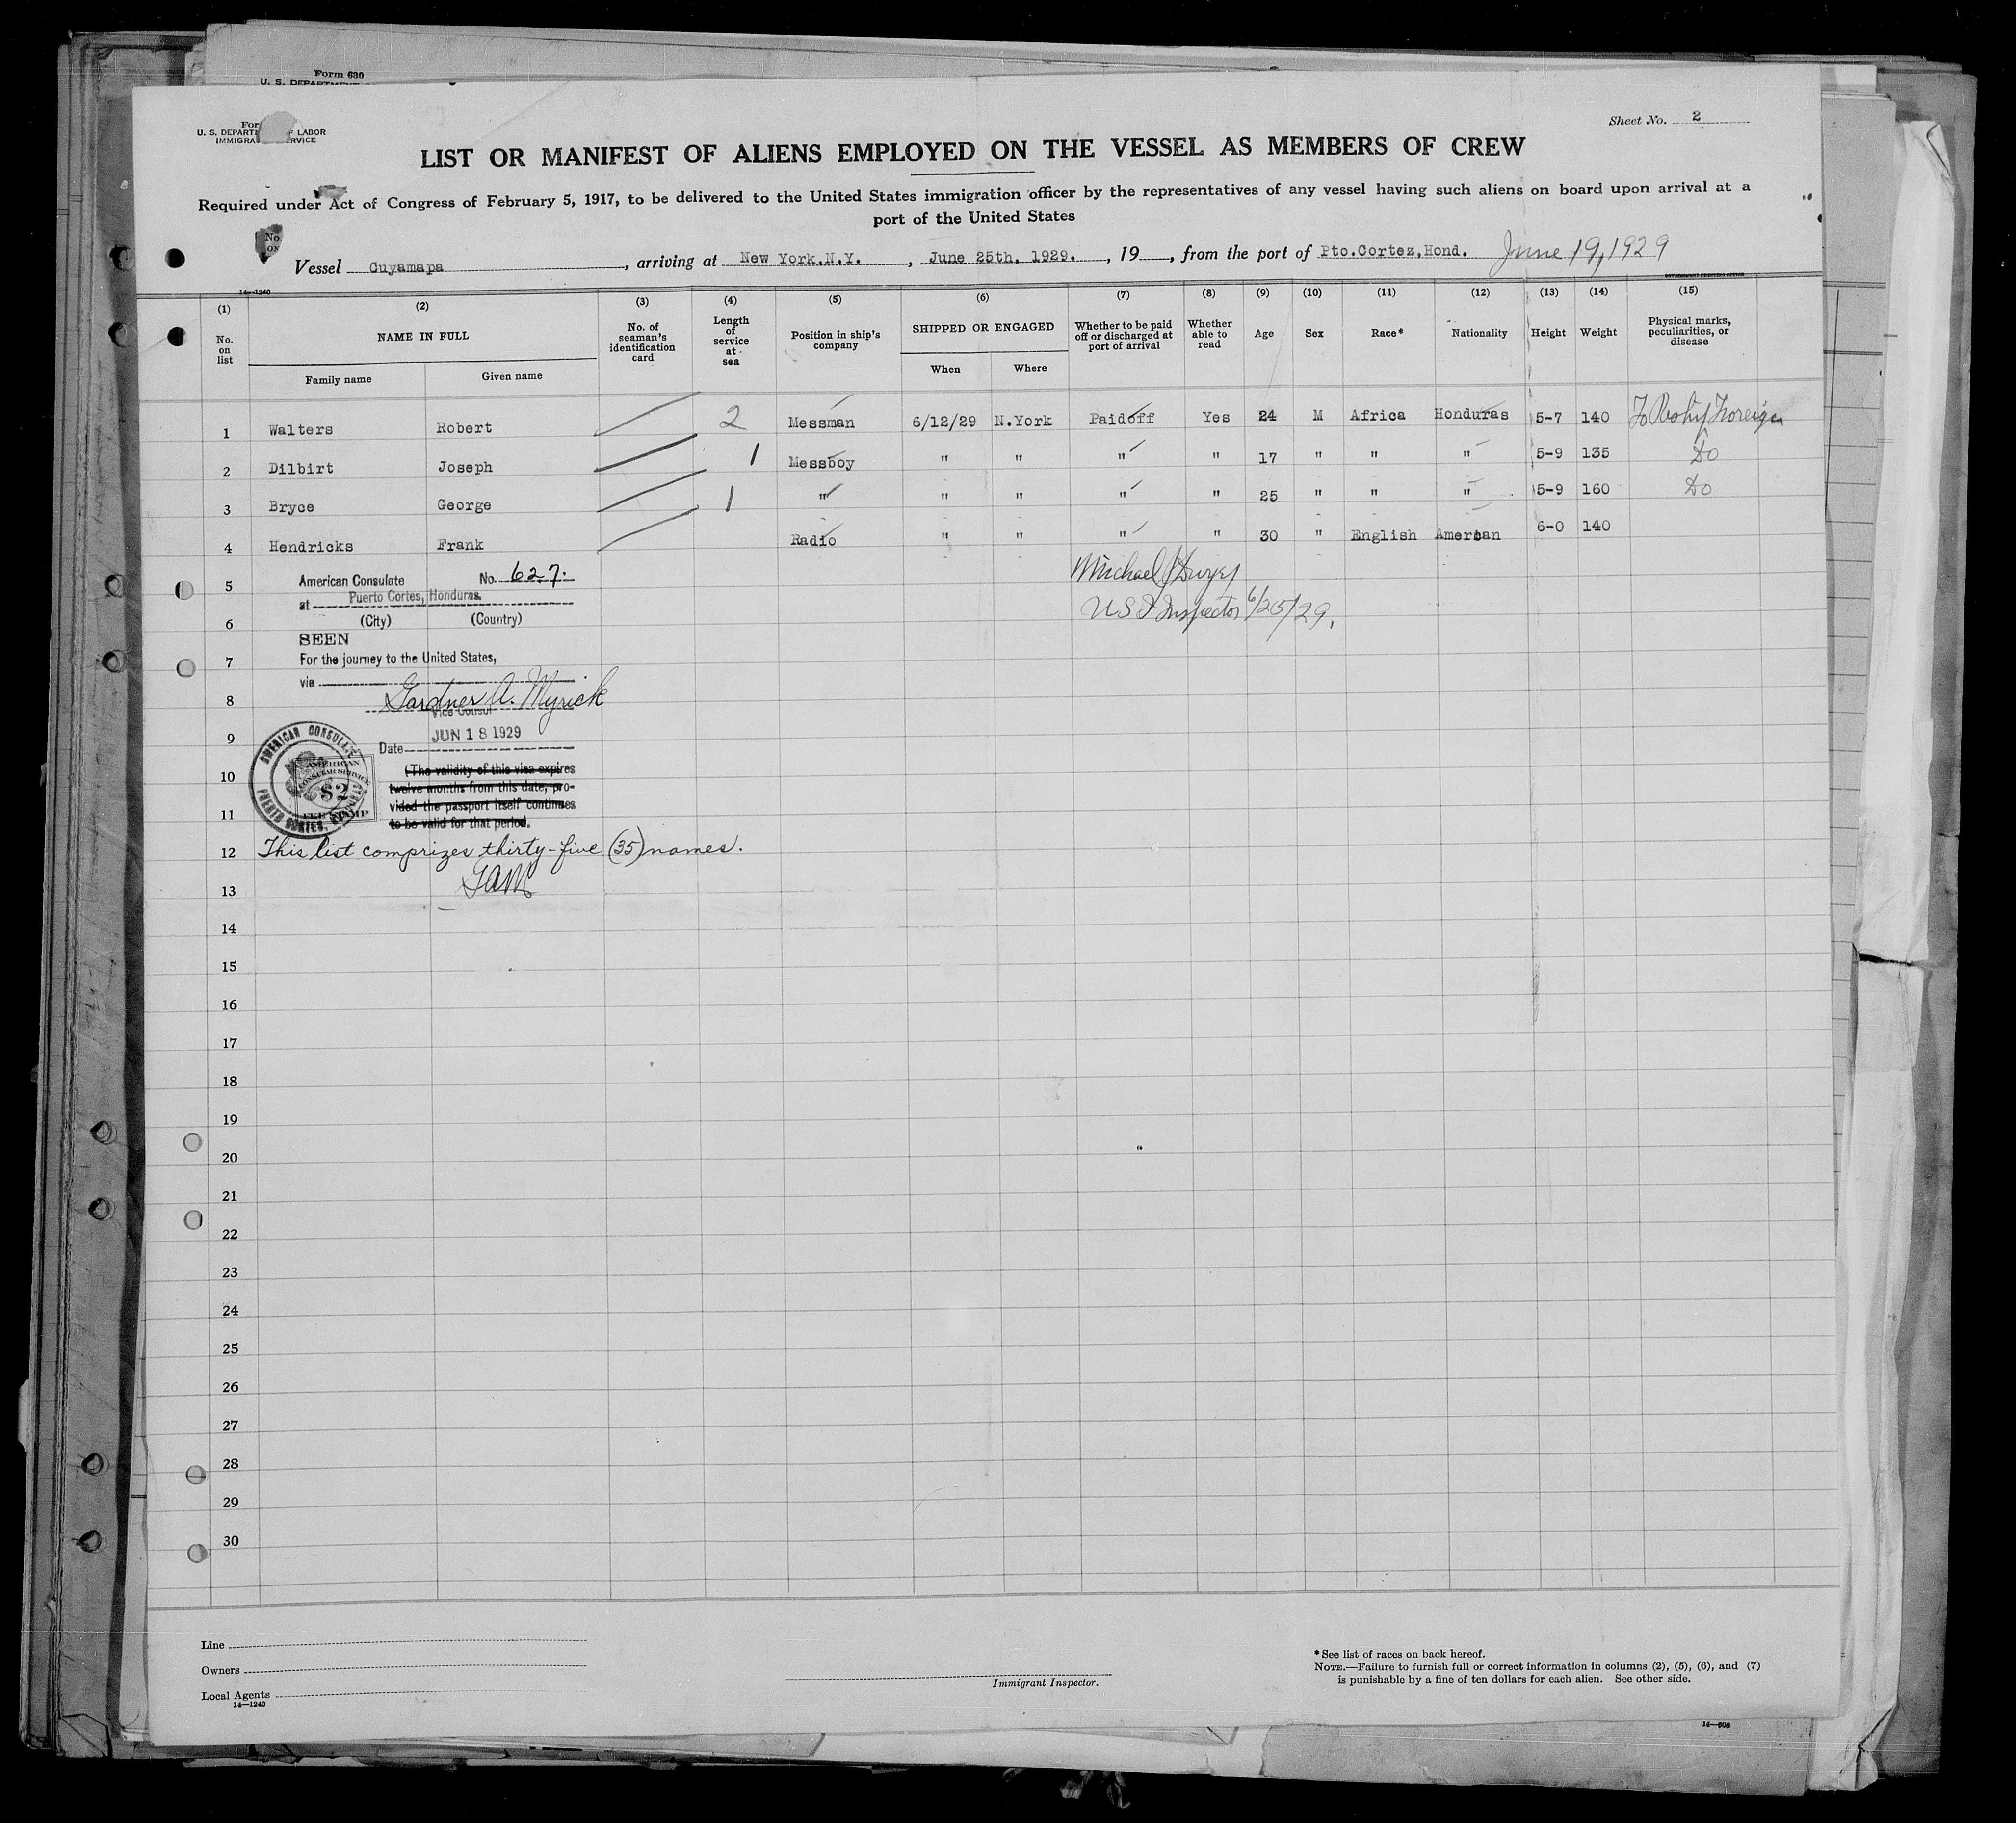 Form 630
U. S. DEPARTMENT
For
U. S. DEPART F LABOR
IMMIGRA RVICE
Sheet No. 2
LIST OR MANIFEST OF ALIENS EMPLOYED ON THE VESSEL AS MEMBERS OF CREW
Required under Act of Congress of February 5, 1917, to be delivered to the United States immigration officer by the representatives of any vessel having such aliens on board upon arrival at a
port of the United States
No
on
Vessel Cuyamapa, arriving at New York.N.Y., June 25th. 1929., 19, from the port of Pto.Cortez,Hond. June 19, 1929
14—1240
GOVERNMENT PRINTING OFFICE
(1) (2) (3) (4) (5) (6) (7) (8) (9) (10) (11) (12) (13) (14) (15)
No. on list NAME IN FULL No. of seaman's identification card Length of service at sea Position in ship's company SHIPPED OR ENGAGED Whether to be paid off or discharged at port of arrival Whether able to read Age Sex Race* Nationality Height Weight Physical marks, peculiarities, or disease
Family name Given name When Where
1 Walters Robert 2 Messman 6/12/29 N.York Paidoff Yes 24 M Africa Honduras 5-7 140 To Reship Foreign
2 Dilbirt Joseph 1 Messboy " " " " 17 " " " 5-9 135 Do
3 Bryce George 1 " " " " " 25 " " " 5-9 160 Do
4 Hendricks Frank Radio " " " " 30 " English American 6-0 140
5 American Consulate No. 627. Michael J Dwyer
at Puerto Cortes, Honduras.
6 (City) (Country) U S I Inspector 6/25/29.
SEEN
7 For the journey to the United States,
via
8 Gardner A. Myrick
Vice Consul
9 Date JUN 18 1929
AMERICAN CONSULATE
PUERTO CORTES, HONDURAS
AMERICAN
CONSULAR SERVICE
$2
FEE STAMP
10 (The validity of this visa expires
twelve months from this date, pro-
11 vided the passport itself continues
to be valid for that period.
12 This list comprizes thirty-five (35) names.
13 GAM
14
15
16
17
18
19
20
21
22
23
24
25
26
27
28
29
30
Line
Owners
Local Agents
14—1240
Immigrant Inspector.
* See list of races on back hereof.
NOTE.—Failure to furnish full or correct information in columns (2), (5), (6), and (7)
is punishable by a fine of ten dollars for each alien. See other side.
14—608